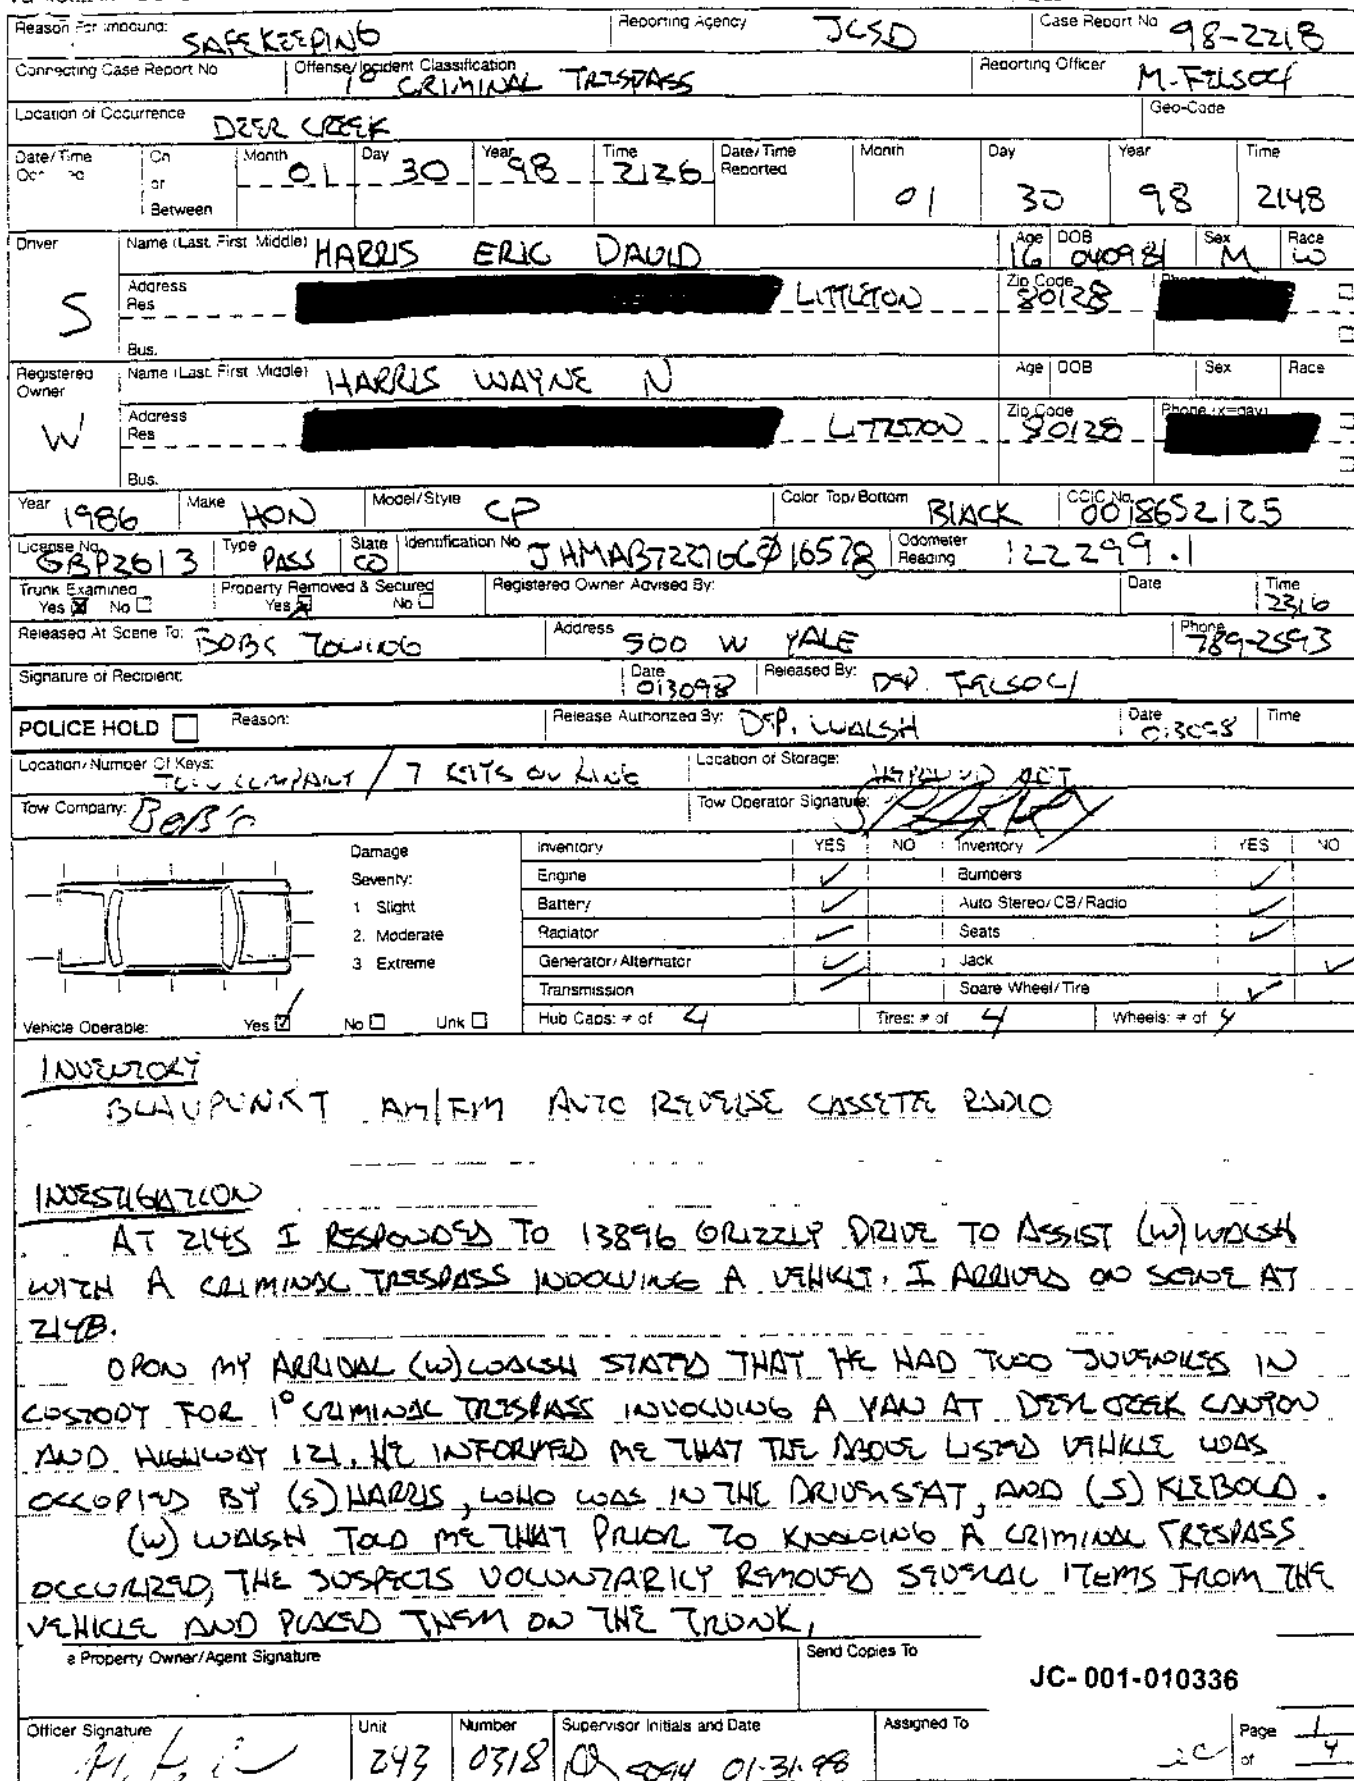 Reason For Impound: SAFEKEEPING Reporting Agency JCSD Case Report No 98-2218
Connecting Case Report No Offense/Incident Classification 1° CRIMINAL TRESPASS Reporting Officer M. FELSOCI
Location of Occurrence DEER CREEK Geo-Code
Date/Time On or Between Month 01 Day 30 Year 98 Time 2126 Date/Time Reported Month 01 Day 30 Year 98 Time 2148
Driver Name (Last, First Middle) HARRIS ERIC DAVID Age 16 DOB 040981 Sex M Race W
S Address Res LITTLETON Zip Code 80128
Bus.
Registered Owner Name (Last, First Middle) HARRIS WAYNE N Age DOB Sex Race
W Address Res LITTLETON Zip Code 80128 Phone (x=day)
Bus.
Year 1986 Make HON Model/Style CP Color Top/Bottom BLACK CCIC No. 0018652125
License No. GBP2613 Type PASS State CO Identification No JHMAB7227GC016578 Odometer Reading 122299.1
Trunk Examined Yes ☒ No ☐ Property Removed & Secured Yes ☒ No ☐ Registered Owner Advised By: Date Time 2316
Released At Scene To: BOBS TOWING Address 500 W YALE Phone 789-2593
Signature of Recipient: Date 013098 Released By: DEP. FELSOCI
POLICE HOLD ☐ Reason: Release Authorized By: DEP. WALSH Date 013098 Time
Location/Number Of Keys: TOW COMPANY / 7 KEYS ON RING Location of Storage: IMPOUND LOT
Tow Company: BOB'S Tow Operator Signature:
Damage Inventory YES NO Inventory YES NO
Severity: Engine ✓ Bumpers ✓
1 Slight Battery ✓ Auto Stereo/CB/Radio ✓
2. Moderate Radiator ✓ Seats ✓
3 Extreme Generator/Alternator ✓ Jack ✓
Transmission ✓ Spare Wheel/Tire ✓
Vehicle Operable: Yes ☑ No ☐ Unk ☐ Hub Caps: # of 4 Tires: # of 4 Wheels: # of 4
INVENTORY
BLAUPUNKT AM/FM AUTO REVERSE CASSETTE RADIO
INVESTIGATION
AT 2145 I RESPONDED TO 13896 GRIZZLY DRIVE TO ASSIST (W) WALSH
WITH A CRIMINAL TRESPASS INVOLVING A VEHICLE. I ARRIVED ON SCENE AT
2148.
UPON MY ARRIVAL (W) WALSH STATED THAT HE HAD TWO JUVENILES IN
CUSTODY FOR 1° CRIMINAL TRESPASS INVOLVING A VAN AT DEER CREEK CANYON
AND HIGHWAY 121. HE INFORMED ME THAT THE ABOVE LISTED VEHICLE WAS
OCCUPIED BY (S) HARRIS, WHO WAS IN THE DRIVERSEAT, AND (S) KLEBOLD.
(W) WALSH TOLD ME THAT PRIOR TO KNOWING A CRIMINAL TRESPASS
OCCURRED, THE SUSPECTS VOLUNTARILY REMOVED SEVERAL ITEMS FROM THE
VEHICLE AND PLACED THEM ON THE TRUNK.
e Property Owner/Agent Signature Send Copies To
JC-001-010336
Officer Signature Unit 243 Number 0318 Supervisor Initials and Date 01-31-98 Assigned To Page 1 of 4